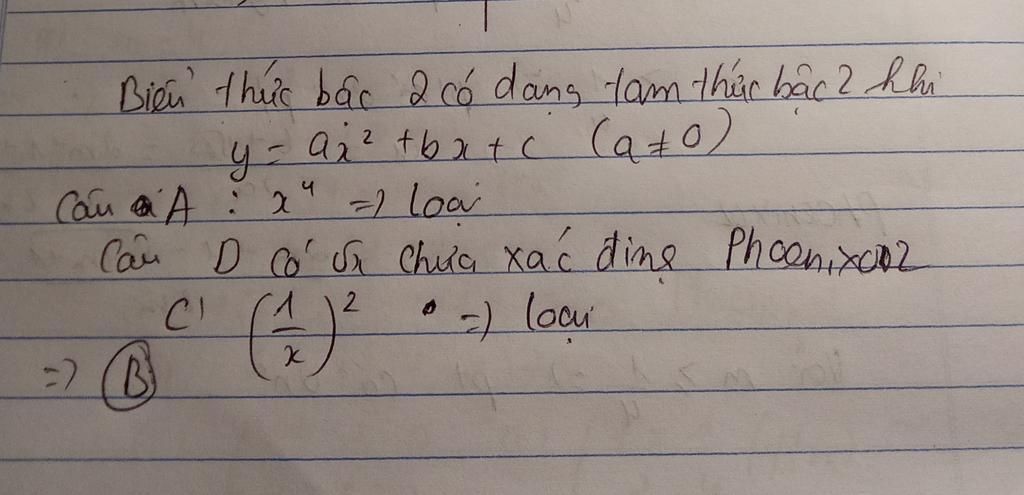 Biểu thức bậc 2 có dạng tam thức bậc 2 khi
y = ax² + bx + c (a ≠ 0)
Câu A : x⁴ => loại
Câu D có √x chưa xác định Phoenix002
C) (1/x)² => loại
=> B